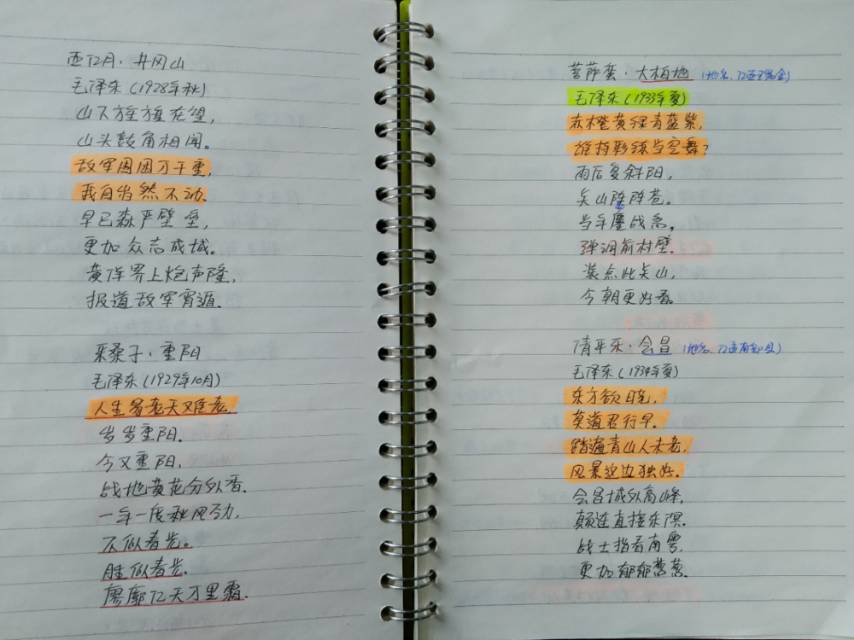 西江月·井冈山
毛泽东(1928年秋)
山下旌旗在望,
山头鼓角相闻。
敌军围困万千重,
我自岿然不动。
早已森严壁垒,
更加众志成城。
黄洋界上炮声隆,
报道敌军宵遁.
采桑子·重阳
毛泽东(1929年10月)
人生易老天难老,
岁岁重阳.
今又重阳,
战地黄花分外香.
一年一度秋风劲,
不似春光。
胜似春光.
廖廓江天万里霜.
菩萨蛮·大柏地 (地名,江西瑞金)
毛泽东(1933年夏)
赤橙黄绿青蓝紫,
谁持彩练当空舞?
雨后复斜阳,
关山阵阵苍。
当年鏖战急。
弹洞前村壁.
装点此关山,
今朝更好看.
清平乐·会昌 (地名,江西南部县)
毛泽东(1934年夏)
东方欲晓,
莫道君行早.
踏遍青山人未老,
风景这边独好.
会昌城外高峰,
颠连直接东溟.
战士指看南粤,
更加郁郁葱葱.